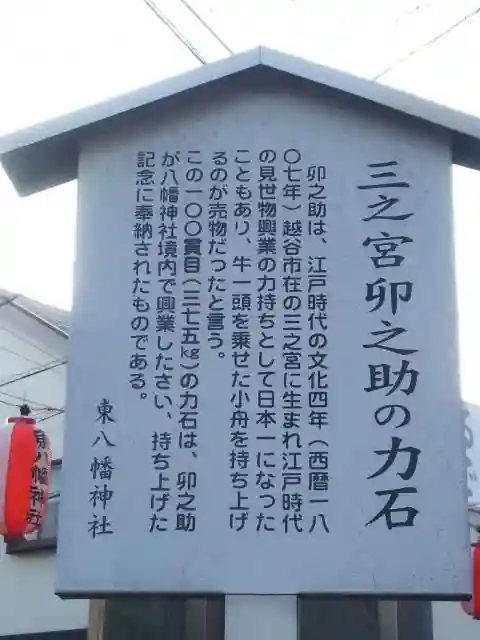 三之宮卯之助の力石
卯之助は、江戸時代の文化四年(西暦一八
〇七年)越谷市在の三之宮に生まれ江戸時代
の見世物興業の力持ちとして日本一になった
こともあり、牛一頭を乗せた小舟を持ち上げ
るのが売物だったと言う。
この一〇〇貫目(三七五kg)の力石は、卯之助
が八幡神社境内で興業したさい、持ち上げた
記念に奉納されたものである。
東八幡神社
八幡神社